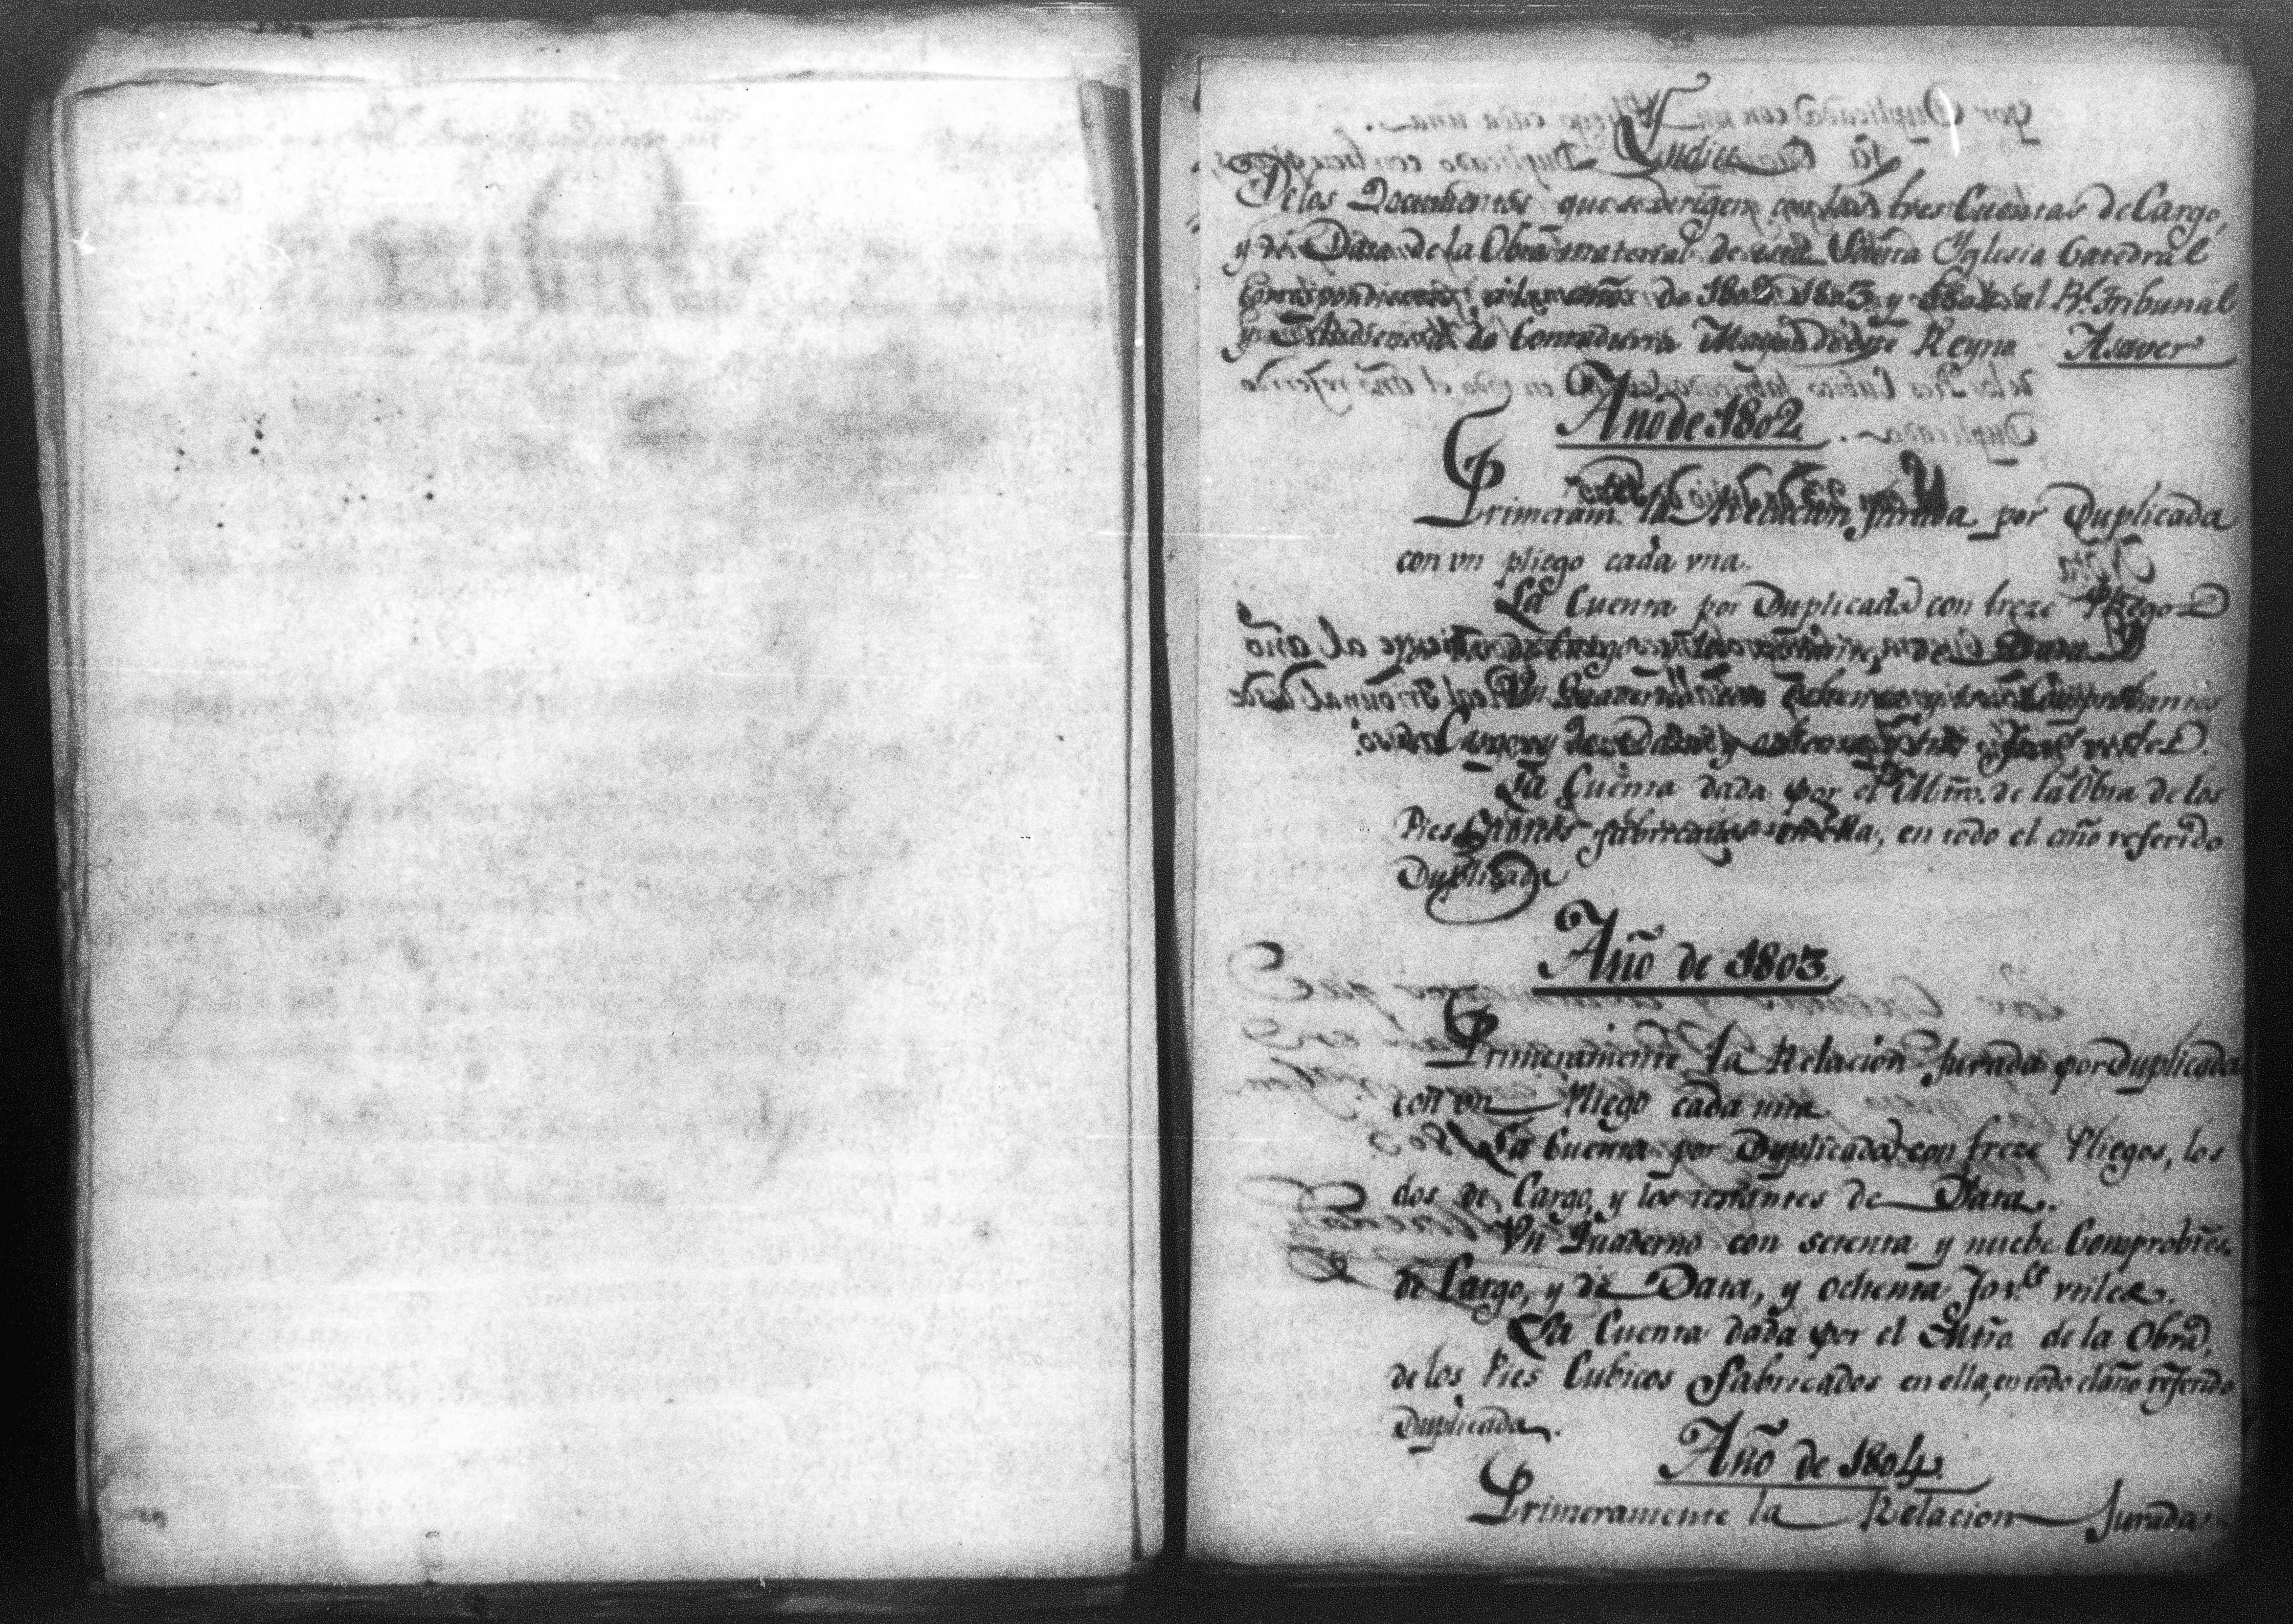 Indice
De los Documentos que se dirigen con las tres Cuentas de Cargo,
y de Data de la Obra material de esta Santa Yglesia Catedral
Correspondientes a los años de 1802 1803 y 1804 al Rl. Tribunal
y Audiencia de Contaduria Mayor de este Reyno Asaver
Año de 1802.
Primeram.te la Relacion Jurada por Duplicada
con vn pliego cada vna.
La Cuenta por Duplicada con treze Pliegos
de Cargo y los restantes de Data
Vn Quaderno con y Comprobantes
de Cargo, y de Data, y Jor.s vtiles.
La Cuenta dada por el Mro. de la Obra de los
Pies Cubicos fabricados en ella, en todo el año referido
Duplicada
Año de 1803.
Primeramente la Relacion Jurada por Duplicada
con vn Pliego cada una.
La Cuenta por Duplicada con treze Pliegos, los
dos de Cargo, y los restantes de Data.
Vn Quaderno con setenta y nuebe Comprobtes.
de Cargo, y de Data, y ochenta Jor.s vtiles.
La Cuenta dada por el Mro. de la Obra,
de los Pies Cubicos Fabricados en ella, en todo el año referido
Duplicada.
Año de 1804.
Primeramente la Relacion Jurada